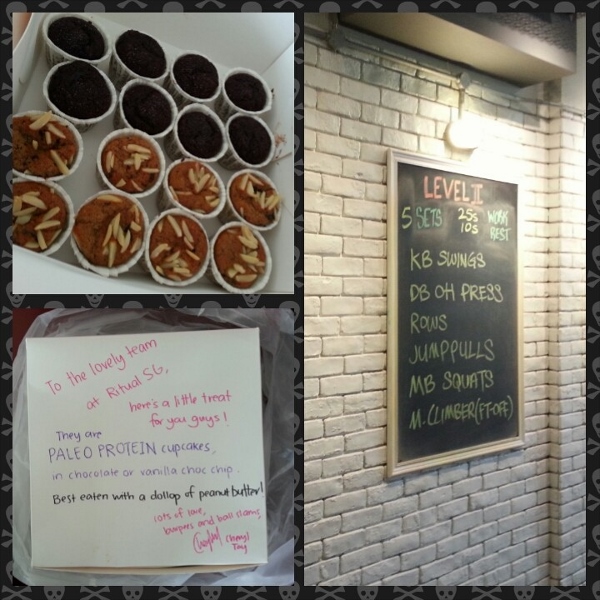 To the lovely team
at Ritual SG,
here's a little treat
for you guys!
They are
PALEO PROTEIN cupcakes,
in chocolate or vanilla choc chip.
Best eaten with a dollop of peanut butter!
lots of love,
burpees and ball slams,
Cheryl
Tay
LEVEL II
5 SETS 25s WORK
10s REST
KB SWINGS
DB OH PRESS
ROWS
JUMP PULLS
MB SQUATS
M.CLIMBER (FT-OFF)